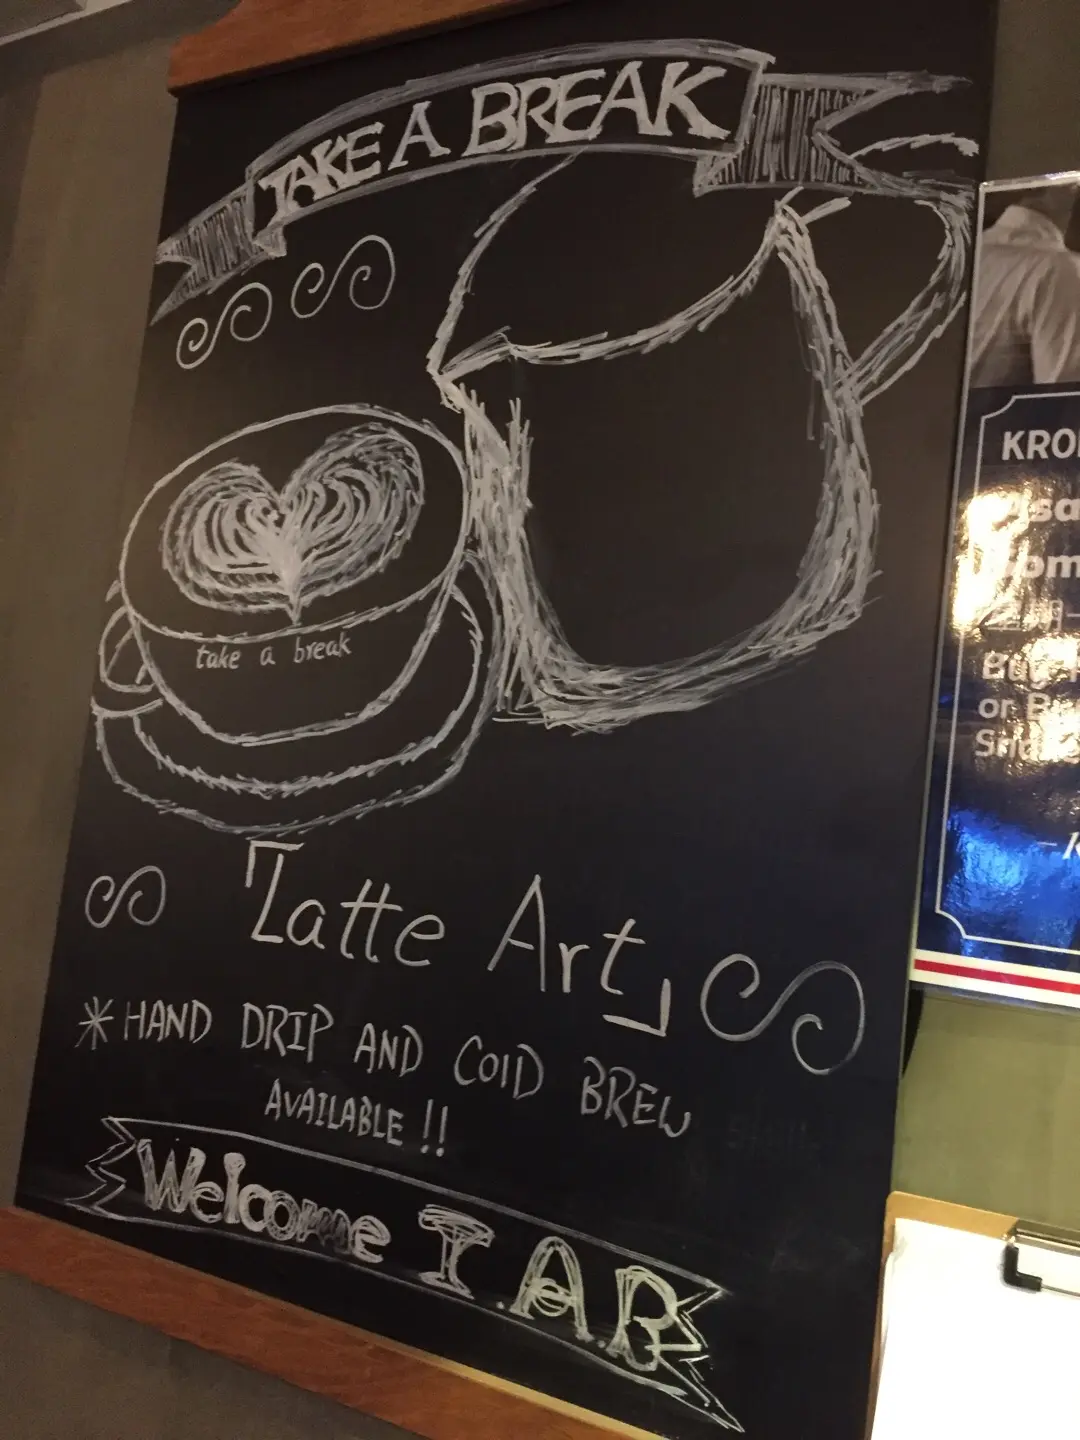 TAKE A BREAK
take a break
「Latte Art」
*HAND DRIP AND COlD BREW
AVAILABLE !!
Welcome T.A.B
KRO
or B